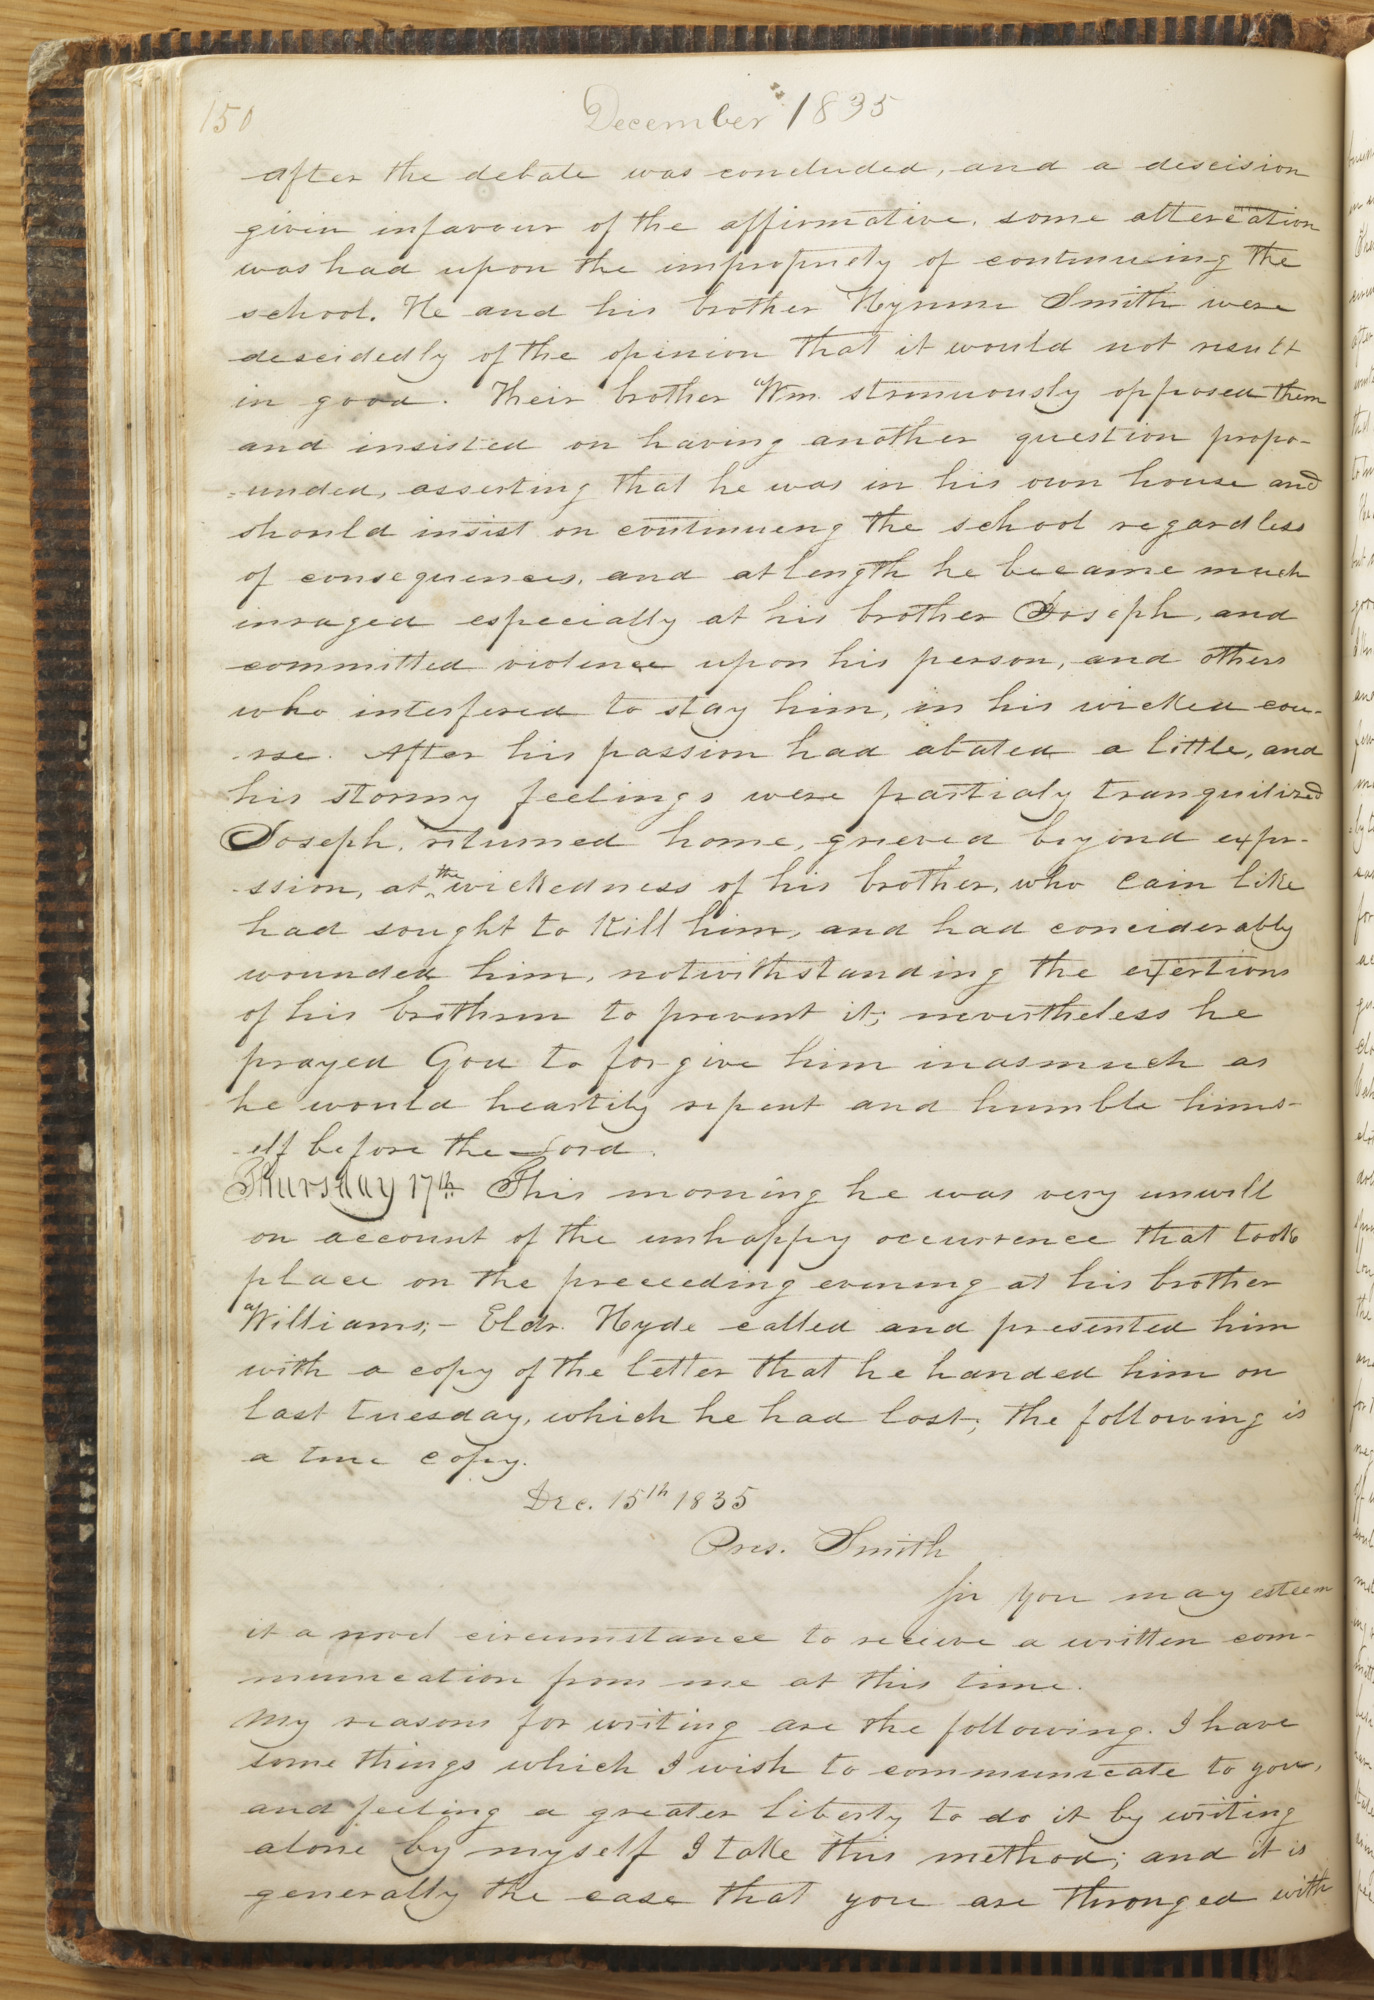 150
December 1835
after the debate was concluded, and a descision
given infavour of the affirmative, some altercation
was had upon the impropriety of continueing the
school. He and his brother Hyrum Smith were
descidedly of the opinion that it would not result
in good. Their brother Wm. strenuously opposed them
and insisted on having another question propo-
=unded, asserting that he was in his own house and
should insist on continueng the school regardless
of consequences, and at length he became much
inraged especially at his brother Joseph, and
committed violence upon his person, and others
who interfered to stay him, in his wicked cou-
-rse. After his passion had abated a little, and
his stormy feelings were partialy tranquilized
Joseph, returned home, grieved beyond expr-
-ssion, at the wickedness of his brother, who Cain like
had sought to kill him, and had conciderably
wounded him, notwithstanding the exertions
of his brethren to prevent it; nevertheless he
prayed God to forgive him inasmuch as
he would heartily repent and humble hims-
-elf before the Lord.
Thursday 17th This morning he was very unwell
on account of the unhappy occurrence that took
place on the preceeding evening at his brother
Williams;- Eldr. Hyde called and presented him
with a copy of the letter that he handed him on
last tuesday, which he had lost; the following is
a true copy.
Dec. 15th 1835
Pres. Smith
Sir you may esteem
it a novel circumstance to receive a written com-
munication from me at this time.
My reasons for writing are the following. I have
some things which I wish to communicate to you,
and feeling a greater liberty to do it by writing
alone by myself I take this method; and it is
generally the case that you are thronged with